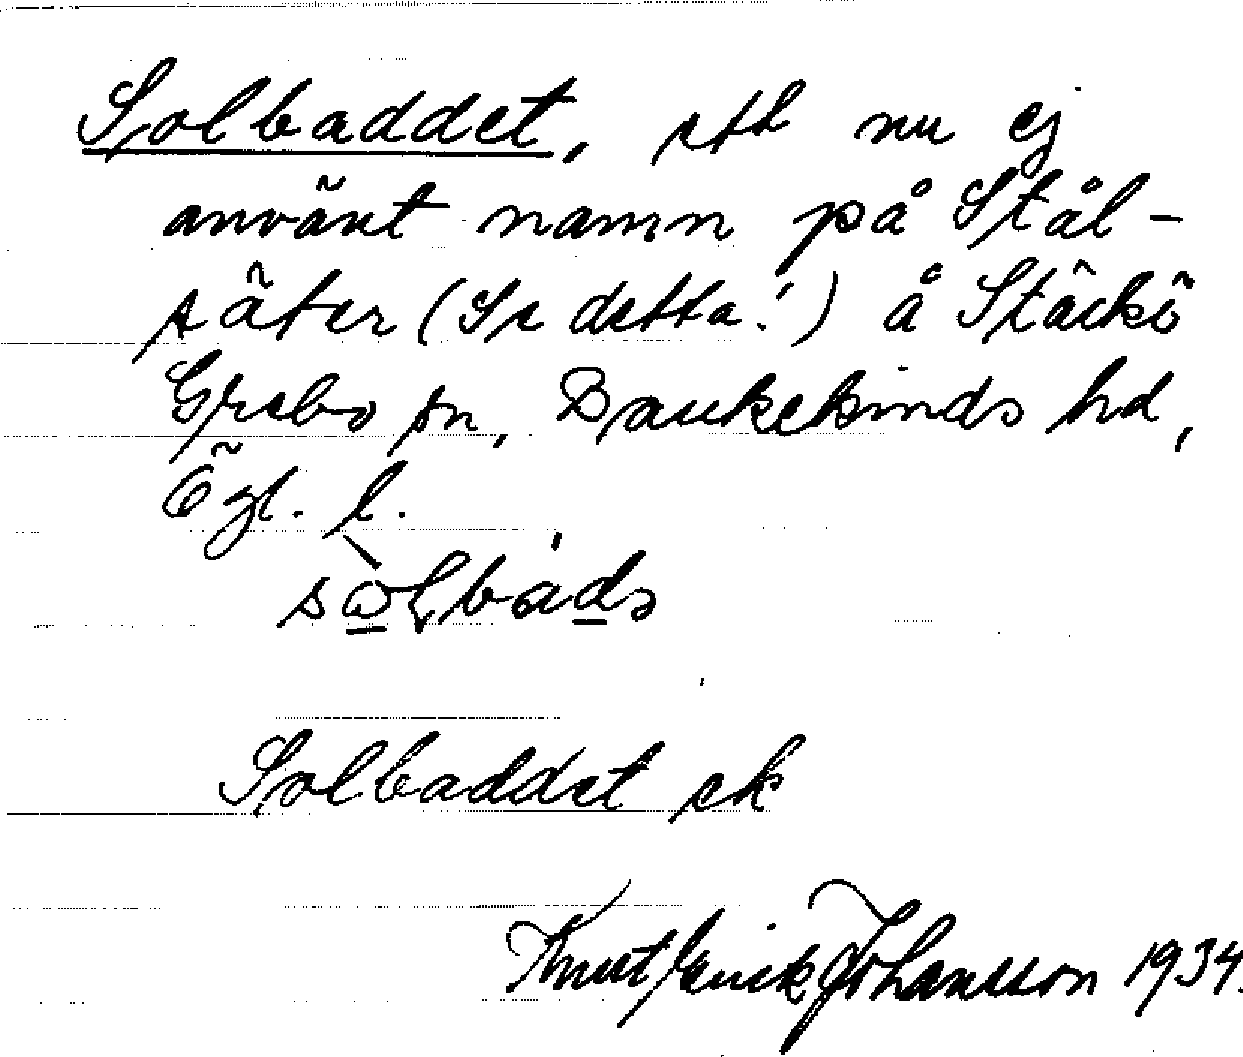 Solbaddet, ett nu ej
använt namn på Stål-
säter (Se detta!) å Stäckö
Grebo sn, Bankekinds hd,
Ögl. l.
Solbaddet ek
Knut Erick Johansson 1934.